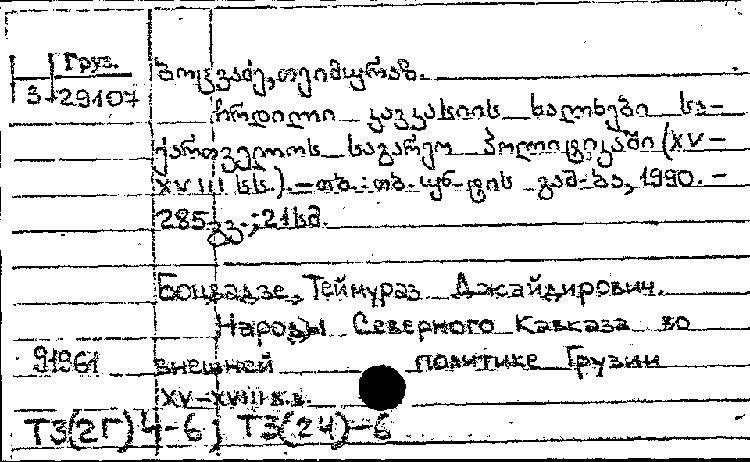 Груз.
ბოცვაძე, თეიმურაზ.
3-29107
ჩრდილო კავკასიის ხალხები სა-
ქართველოს საგარეო პოლიტიკაში (XV-
XVIII სს.). – თბ.: თბ. უნ-ტის გამ-ბა, 1990. –
285 გვ.; 21 სმ.
Боцвадзе, Теймураз Джайдирович.
Народы Северного Кавказа во
91961 внешней политике Грузии
XV-XVIII в.в.
Т3(2Г)4-6; Т3(24)-6